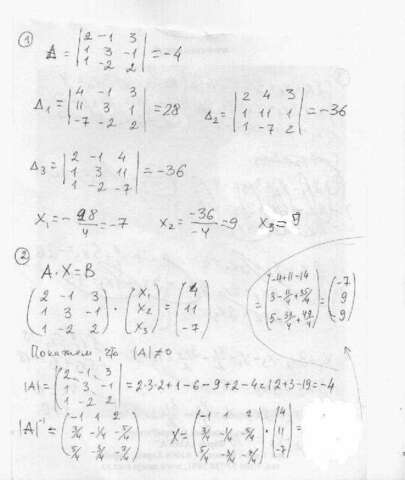 ①
Δ = |2 -1 3; 1 3 -1; 1 -2 2| = -4
Δ₁ = |4 -1 3; 11 3 1; -7 -2 2| = 28 Δ₂ = |2 4 3; 1 11 1; 1 -7 2| = -36
Δ₃ = |2 -1 4; 1 3 11; 1 -2 -7| = -36
X₁ = -28/4 = -7 X₂ = -36/-4 = 9 X₃ = 9
②
A · X = B
(2 -1 3; 1 3 -1; 1 -2 2) · (X₁; X₂; X₃) = (4; 11; -7)
= (-4+11-14; 3-11/4+35/4; 5-33/4+49/4) = (-7; 9; 9)
Покажем, что |A| ≠ 0
|A| = |2 -1 3; 1 3 -1; 1 -2 2| = 2·3·2+1-6-9+2-4=12+3-19=-4
|A|⁻¹ = (-1 1 2; 3/4 -1/4 -5/4; 5/4 -3/4 -7/4) X = (-1 1 2; 3/4 -1/4 -5/4; 5/4 -3/4 -7/4) · (4; 11; -7) =